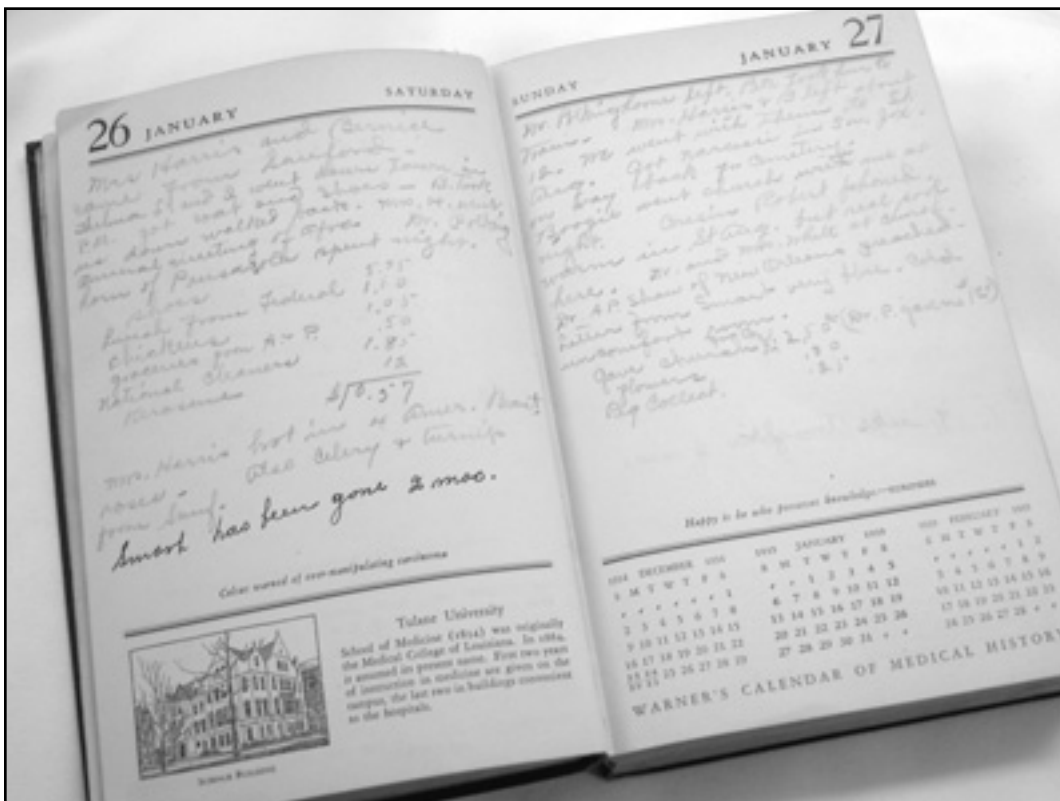 26 JANUARY SATURDAY
Mrs Harris and Bernice
came from Sanford.
and I went down town in
P.M. got hat and shoes - B. took
us down walked back. Mrs. H. went
Dr.
of Pensacola spent night.
5.95
from Federal 1.10
chickens 1.05
groceries from A & P. .50
National Cleaners 1.85
Kerosene 12
$10.57
Mrs. Harris brot in 4 Amer. Beauty
roses. Also celery & turnips
from Sanf.
Smart has been gone 2 mos.
Celsus warned of over-manipulating carcinoma
Tulane University
School of Medicine (1834) was originally
the Medical College of Louisiana. In 1884,
it assumed its present name. First two years
of instruction in medicine are given on the
campus, the last two in buildings convenient
to the hospitals.
SCIENCE BUILDING
SUNDAY JANUARY 27
Mr. left. took him to
train. Mrs. Harris & B left about
12. We went with them to St.
Aug. Got
on way back to cemetery.
went church with me at
night. Cousin Robert phoned.
warm in St Aug. but real cool
here. Dr. and Mrs. at church
Dr A.P. Shaw of New Orleans preached.
letter from Smart very blue. Cold
room.
Gave church 2.50 (Dr. P. gave $12)
flowers .30
Big Collect. .25
Happy is he who possesses knowledge—
1934 DECEMBER 1934
S M T W T F S
* * * * * * 1
2 3 4 5 6 7 8
9 10 11 12 13 14 15
16 17 18 19 20 21 22
23 24 25 26 27 28 29
30 31
1935 JANUARY 1935
S M T W T F S
* * 1 2 3 4 5
6 7 8 9 10 11 12
13 14 15 16 17 18 19
20 21 22 23 24 25 26
27 28 29 30 31 * *
1935 FEBRUARY 1935
S M T W T F S
* * * * * 1 2
3 4 5 6 7 8 9
10 11 12 13 14 15 16
17 18 19 20 21 22 23
24 25 26 27 28 * *
WARNER'S CALENDAR OF MEDICAL HISTORY